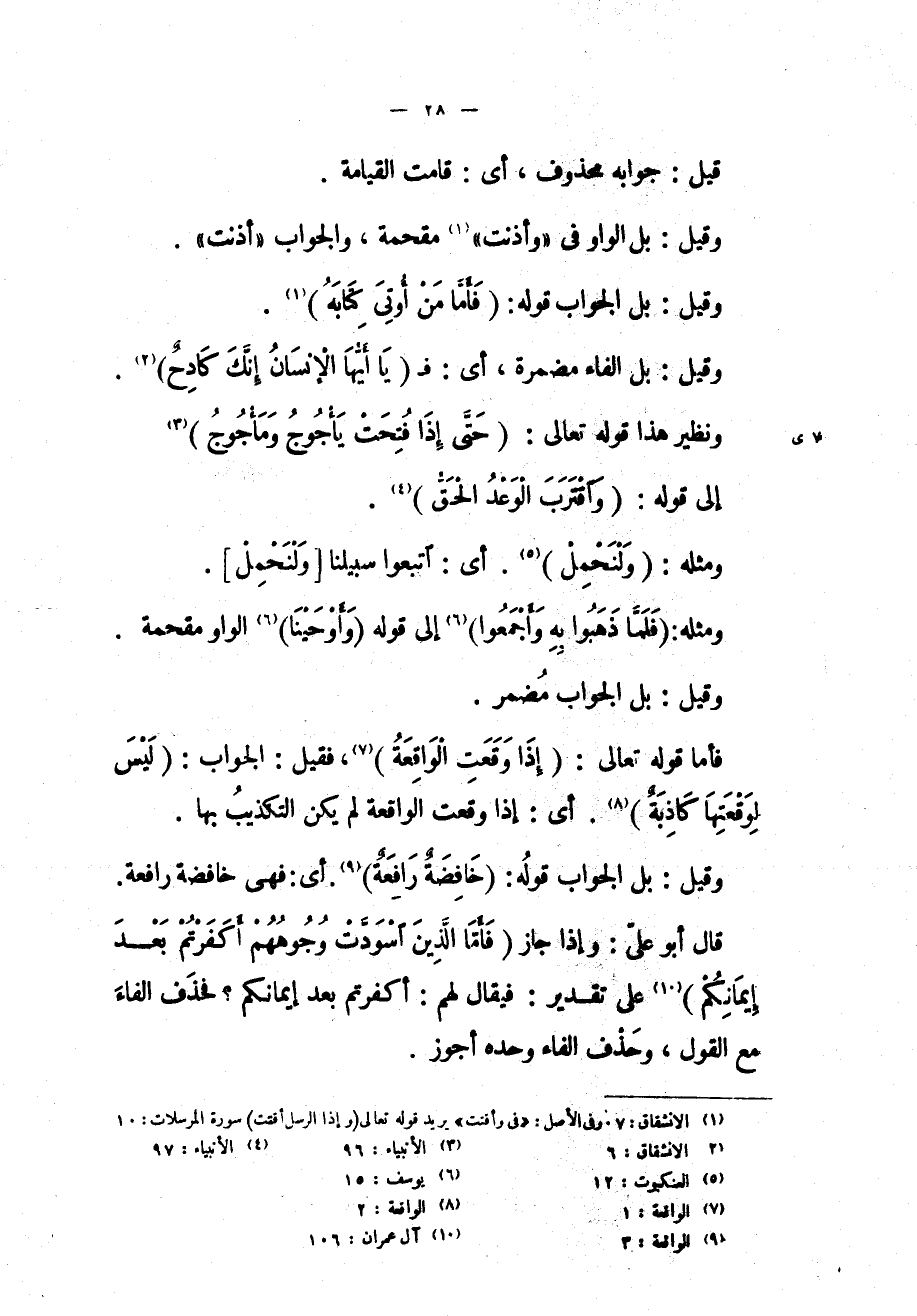 — ٢٨ —
قيل : جوابه محذوف ، أى : قامت القيامة .
وقيل : بل الواو فى «وأذنت»(١) مقحمة ، والجواب «أذنت» .
وقيل : بل الجواب قوله: ( فَأَمَّا مَنْ أُوتِىَ كِتَابَهُ )(١) .
وقيل : بل الفاء مضمرة ، أى : فـ ( يَا أَيُّهَا الْإِنسَانُ إِنَّكَ كَادِحٌ)(٢) .
ونظير هذا قوله تعالى : ( حَتَّى إِذَا فُتِحَتْ يَأْجُوجُ وَمَأْجُوجُ )(٣)
٧ ى
إلى قوله : ( وَٱقْتَرَبَ الْوَعْدُ الْحَقُّ )(٤) .
ومثله : ( وَلْنَحْمِلْ )(٥) . أى : ٱتبعوا سبيلنا [ وَلْنَحْمِلْ ] .
ومثله:(فَلَمَّا ذَهَبُوا بِهِ وَأَجْمَعُوا)(٦) إلى قوله (وَأَوْحَيْنَا)(٦) الواو مقحمة .
وقيل : بل الجواب مُضمر .
فأما قوله تعالى : ( إِذَا وَقَعَتِ الْوَاقِعَةُ )(٧)، فقيل : الجواب : ( لَيْسَ
لِوَقْعَتِهَا كَاذِبَةٌ )(٨) . أى : إذا وقعت الواقعة لم يكن التكذيبُ بها .
وقيل : بل الجواب قولُه: (خَافِضَةٌ رَافِعَةٌ)(٩).أى:فهى خافضة رافعة.
قال أبو علىّ : وإذا جاز ( فَأَمَّا الَّذِينَ ٱسْوَدَّتْ وُجُوهُهُمْ أَكَفَرْتُمْ بَعْـدَ
إِيمَانِكُمْ )(١٠) على تقـدير : فيقال لهم : أكفرتم بعد إيمانكم ؟ فحُذَف الفاءَ
مع القول ، وحَذْف الفاء وحده أجوز .
(١) الانشقاق : ٧ وفى الأصل : «فى وأقتت» يريد قوله تعالى(وإذا الرسل أقتت) سورة المرسلات : ١٠
(٢ الانشقاق : ٦ (٣) الأنبياء : ٩٦ (٤) الأنبياء : ٩٧
(٥) العنكبوت : ١٢ (٦) يوسف : ١٥
(٧) الواقعة : ١ (٨) الواقعة : ٢
(٩) الواقعة : ٣ (١٠) آل عمران : ١٠٦